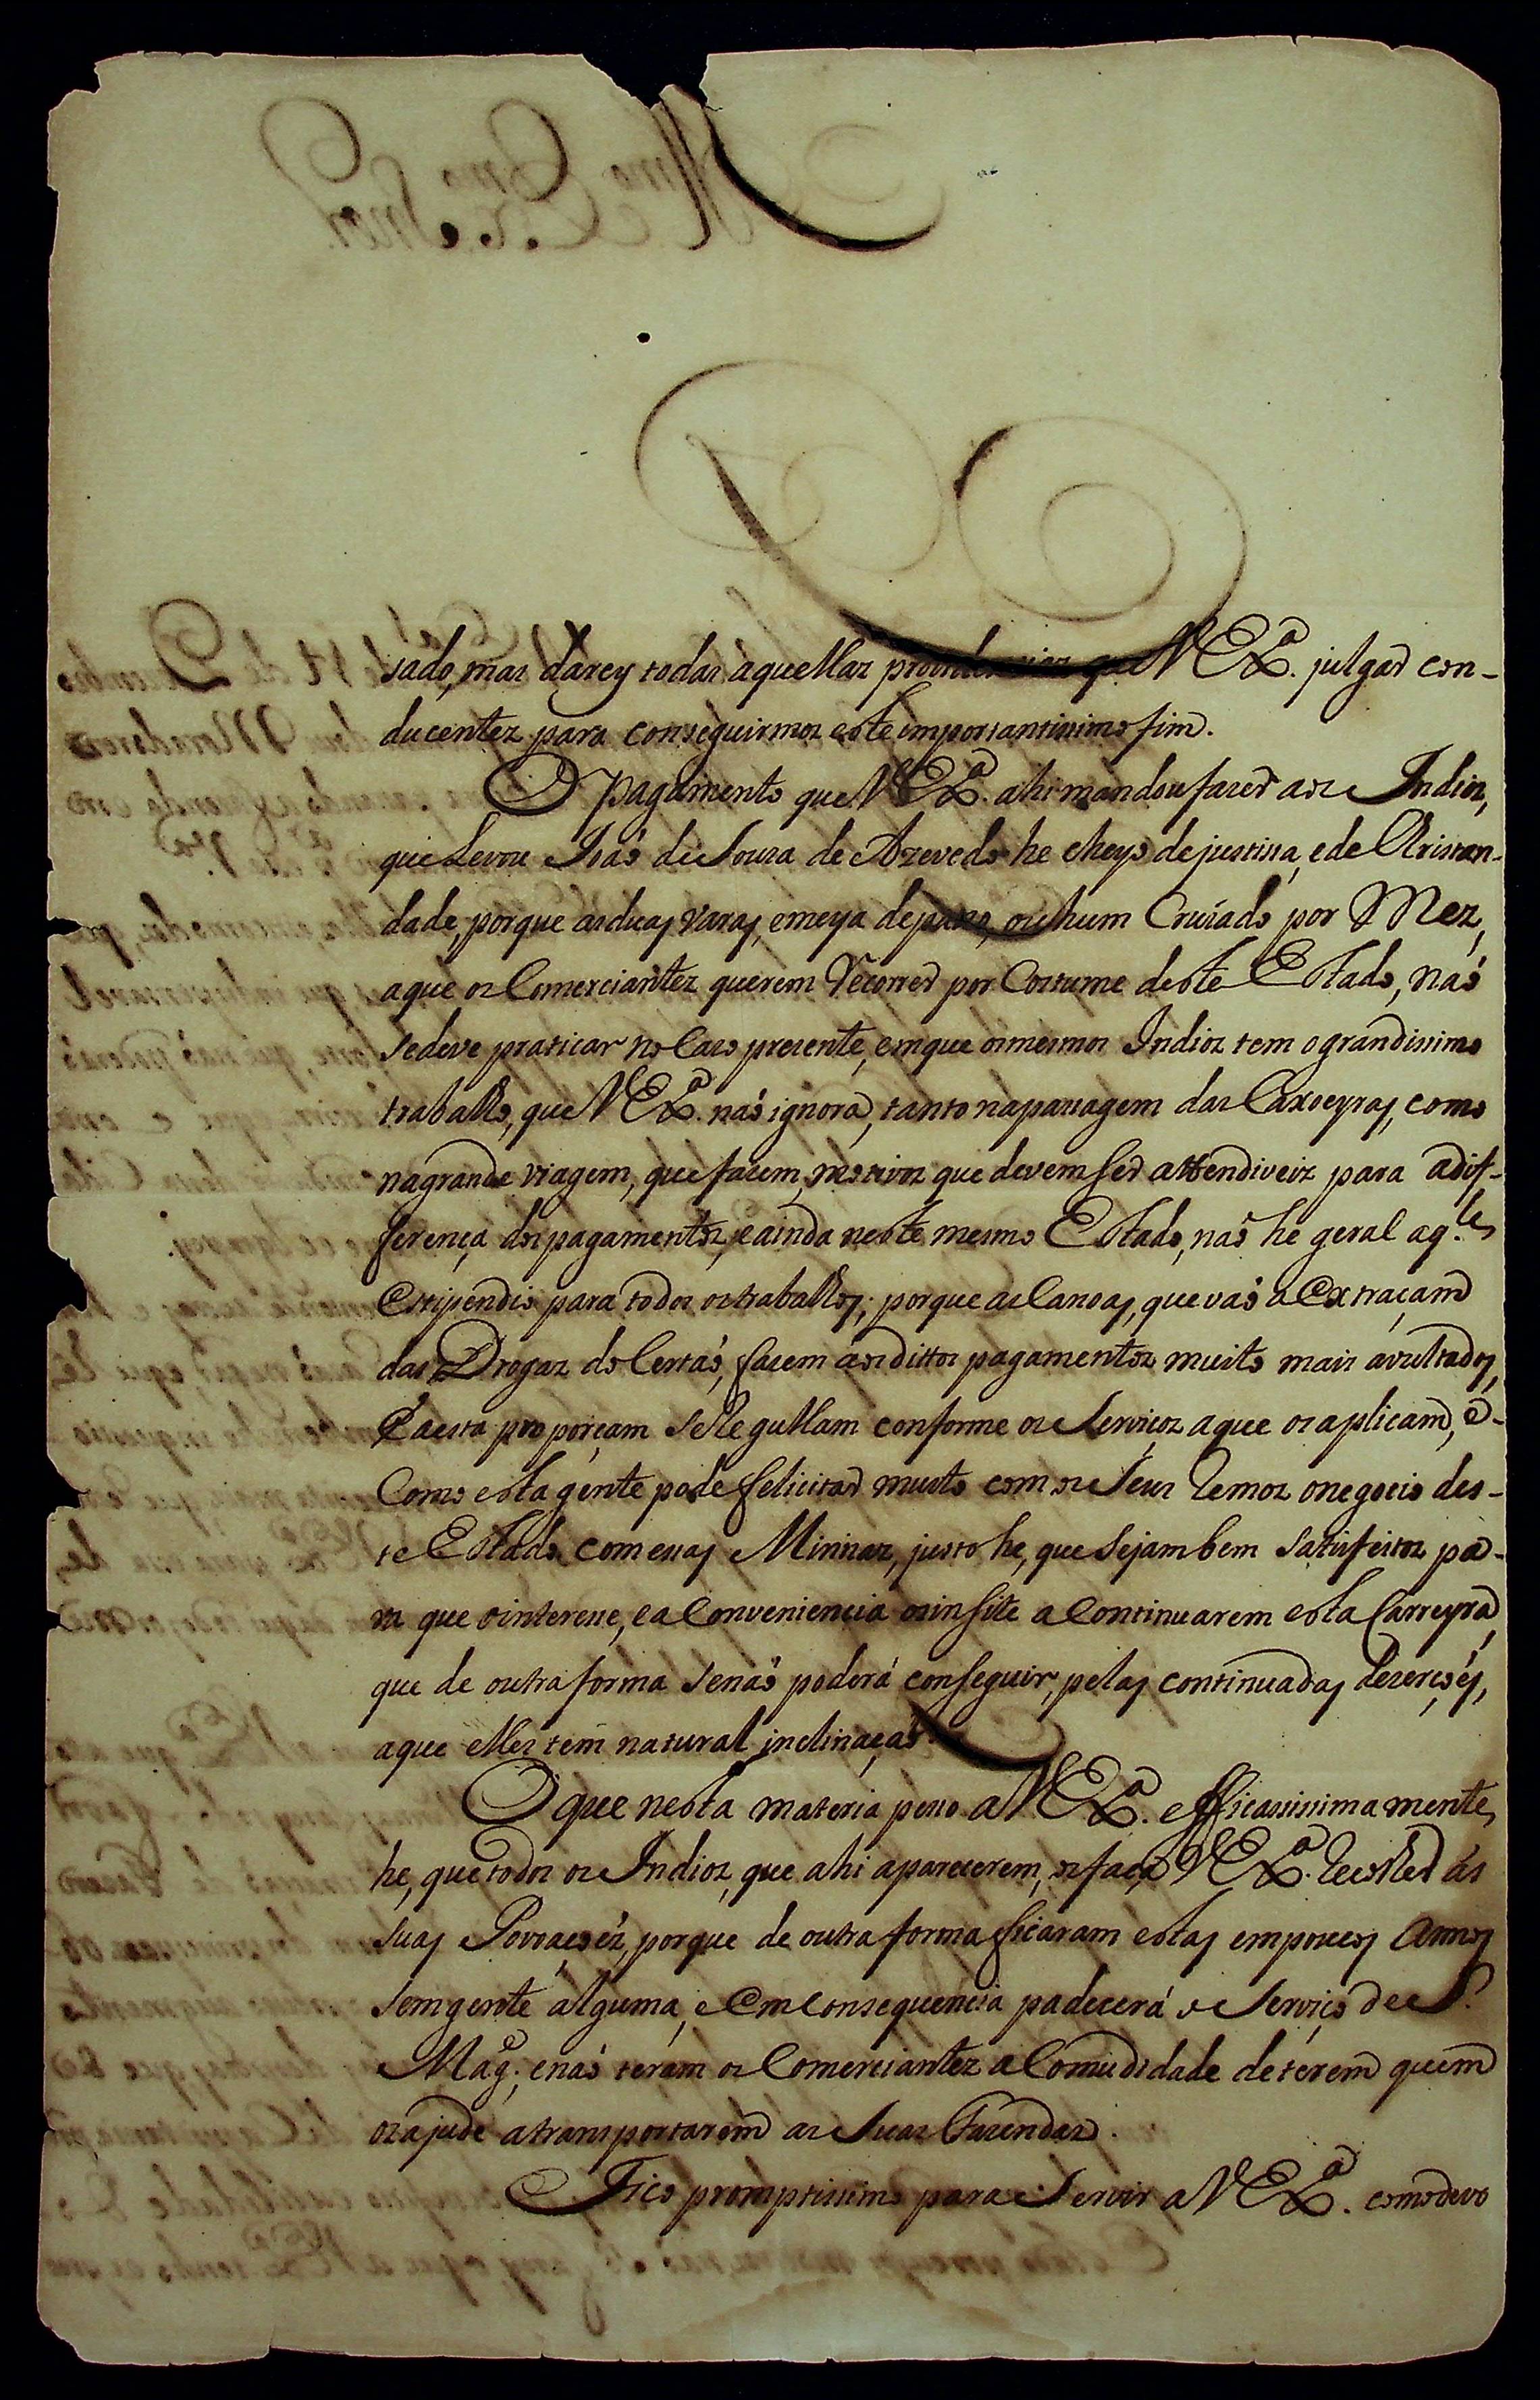 sado, mas darey todas aquellas providencias que V Ex.ª julgar con-
ducentez para conseguirmos este importantissimo fim.
O pagamento que V Ex.ª ahi mandou fazer aos Indios,
que Levou Joaõ de Souza de Azevedo he cheyo de justiça, e de Christan-
dade, porque as duas varas, e meya de pano, ou hum Cruzado por Mez,
a que os Comerciantez querem Recorrer por Costume deste Estado, naõ
se deve praticar no Cazo prezente, em que os mesmos Indios tem o grandissimo
trabalho, que V Ex.ª naõ ignora, tanto na passagem das Caxoeyras, como
na grande viagem, que fazem, motivos que devem ser attendiveis para a dif-
ferença dos pagamentos, e ainda neste mesmo Estado, naõ he geral aq.le
Estipendio para todos os trabalhos; porque as Canoas, que vaõ a Extraçam
das Drogas do Certaõ, fazem aos dittos pagamentos muito mais avultados,
E a esta proporçam se Regullam conforme os Serviços a que os aplicam, e
Como esta gente pode felicitar muito com os seus Remos o negocio des-
te Estado com essas Minnas, justo he, que sejam bem satisfeitos pa-
ra que o interesse, e a Conveniencia os insite a Continuarem esta Carreyra,
que de outra forma se naõ poderá conseguir, pelas continuadas dezerçoẽs,
a que elles tem natural inclinaçaõ.
O que nesta materia pesso a V Ex.ª efficassissimamente,
he, que todos os Indios, que ahi aparecerem, os faça V Ex.ª Recolher ás
suas Povoaçoẽz, porque de outra forma ficaram estas em poucos Annos
sem gente alguma, e Em Consequencia padecerá o Serviço de S.
Mag.e, e naõ teram os Comerciantez a Comudidade de terem quem
os ajude a transportarem as suas Fazendas.
Fico promptissimo para Servir a V Ex.ª como devo